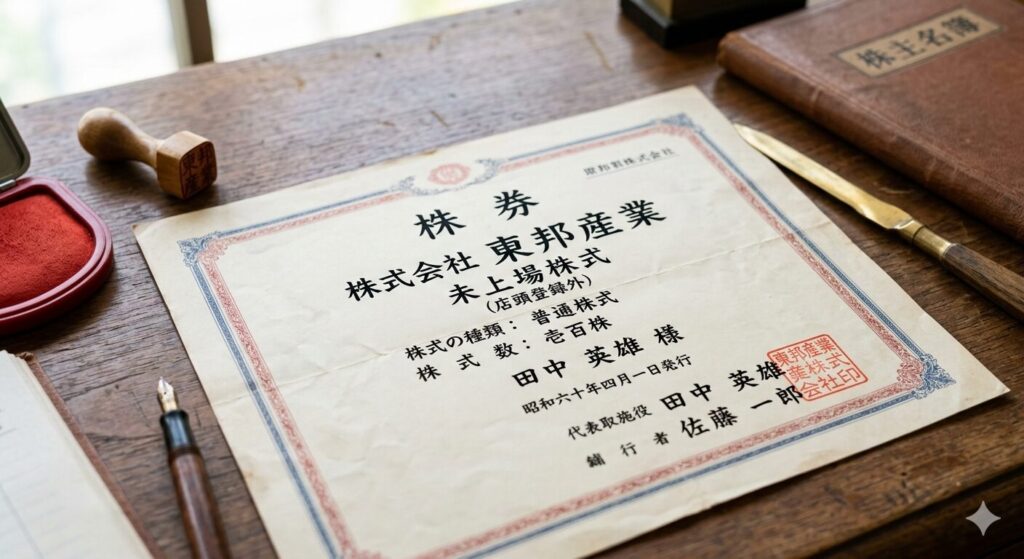 株主名簿
株券
株式会社 東邦産業
未上場株式
(店頭登録外)
株式の種類：普通株式
株式数：壱百株
田中 英雄 様
昭和六十年四月一日発行
代表取施役 田中 英雄
行者 佐藤 一郎
東邦産業
産業株式
会社印